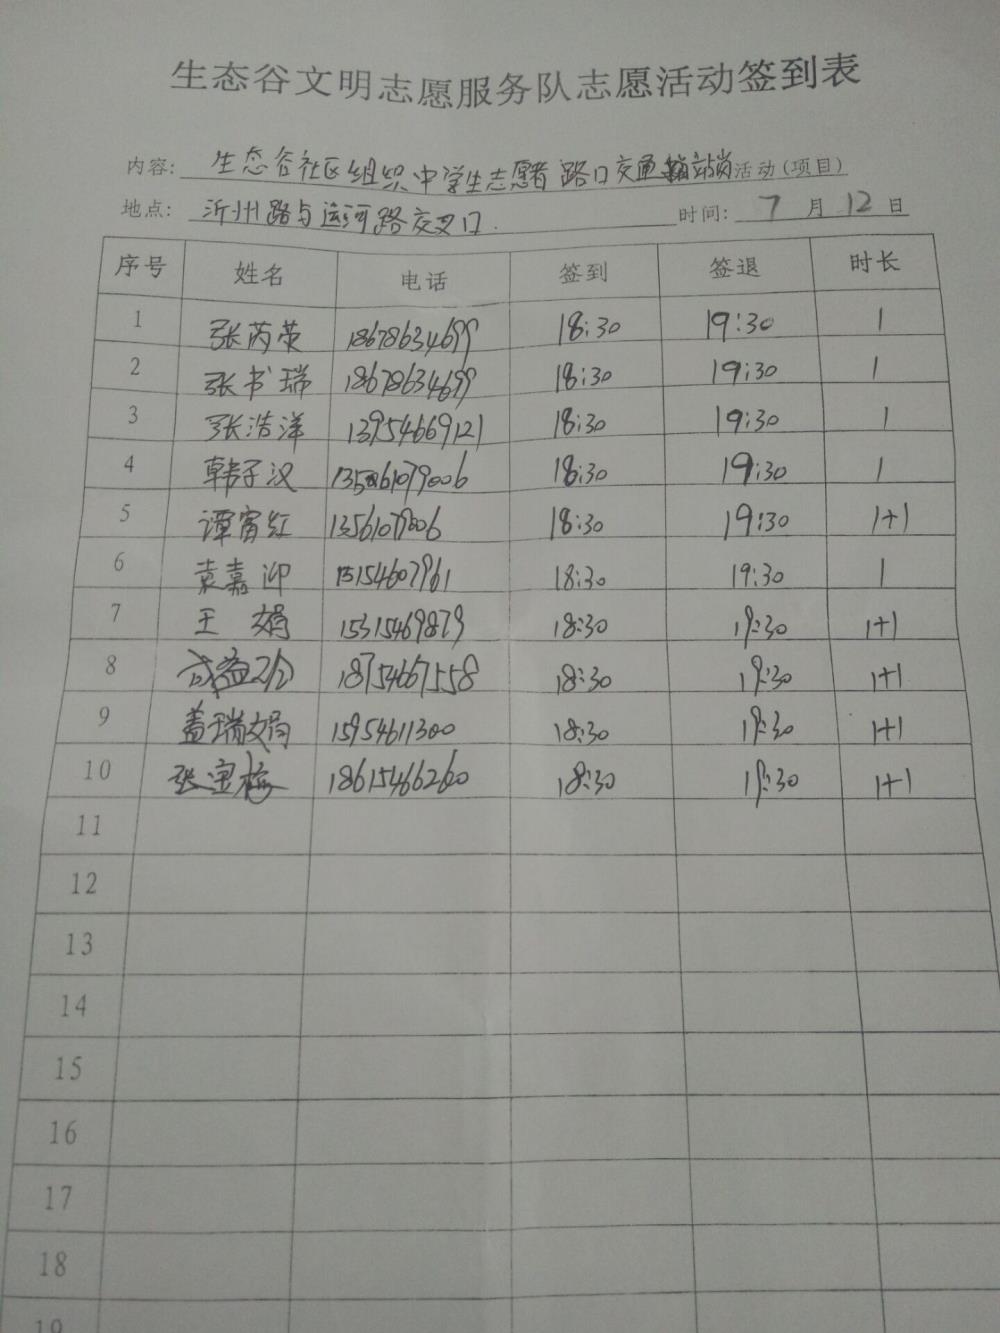 生态谷文明志愿服务队志愿活动签到表
内容: 生态谷社区组织中学生志愿者路口交通站岗活动(项目)
地点: 沂州路与运河路交叉口. 时间: 7 月 12 日
序号 姓名 电话 签到 签退 时长
1 张芮荧 18678634699 18:30 19:30 1
2 张书瑞 18678634699 18:30 19:30 1
3 张浩洋 13954669121 18:30 19:30 1
4 韩子汉 18:30 19:30 1
5 谭富红 18:30 19:30 1+1
6 袁嘉迎 15154607961 18:30 19:30 1
7 王娟 15315469879 18:30 19:30 1+1
8 18754667558 18:30 19:30 1+1
9 盖瑞娟 15954611300 18:30 19:30 1+1
10 张宝梅 18615466260 18:30 19:30 1+1
11
12
13
14
15
16
17
18
19